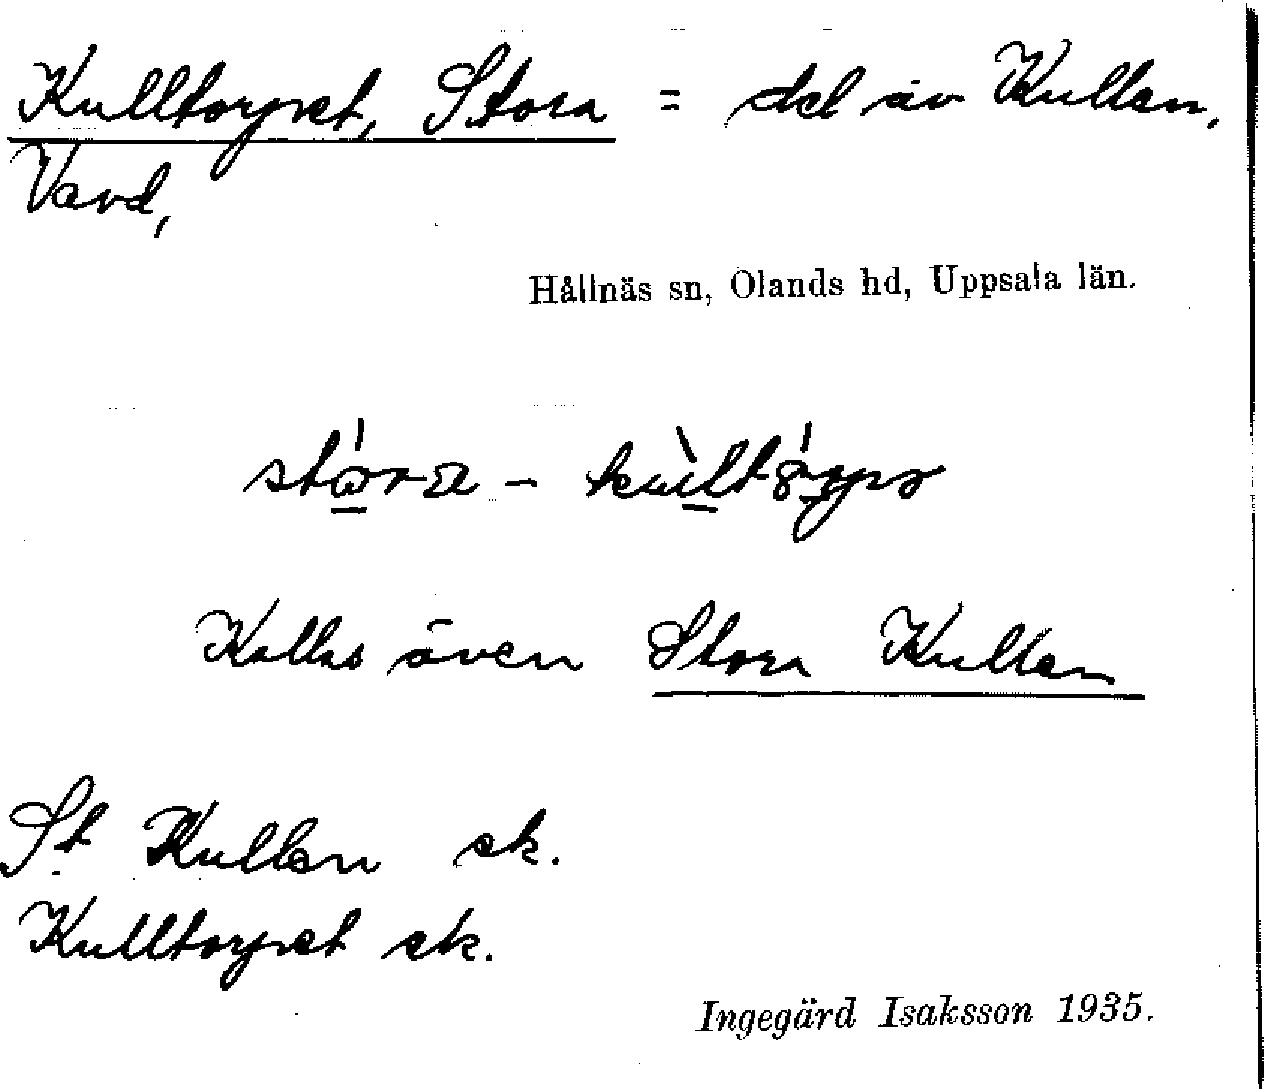 Kulltorpet, Stora = del av Kullen,
Vavd,
Hållnäs sn, Olands hd, Uppsala län.
Kallas även Stora Kullen
St. Kullen ek.
Kulltorpet ek.
Ingegärd Isaksson 1935.